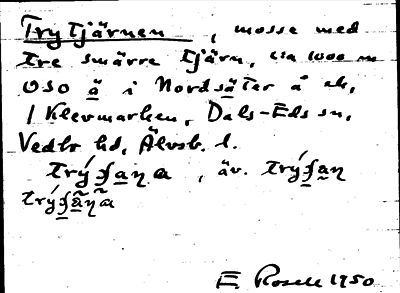 Trytjärnen, mosse med
tre smärre tjärn, ca 1000 m
OSO ä i Nordsäter å ek.
1 Klevmarken, Dals-Eds sn,
Vedbo hd, Älvsb. l.
, äv.
E Rosell 1950